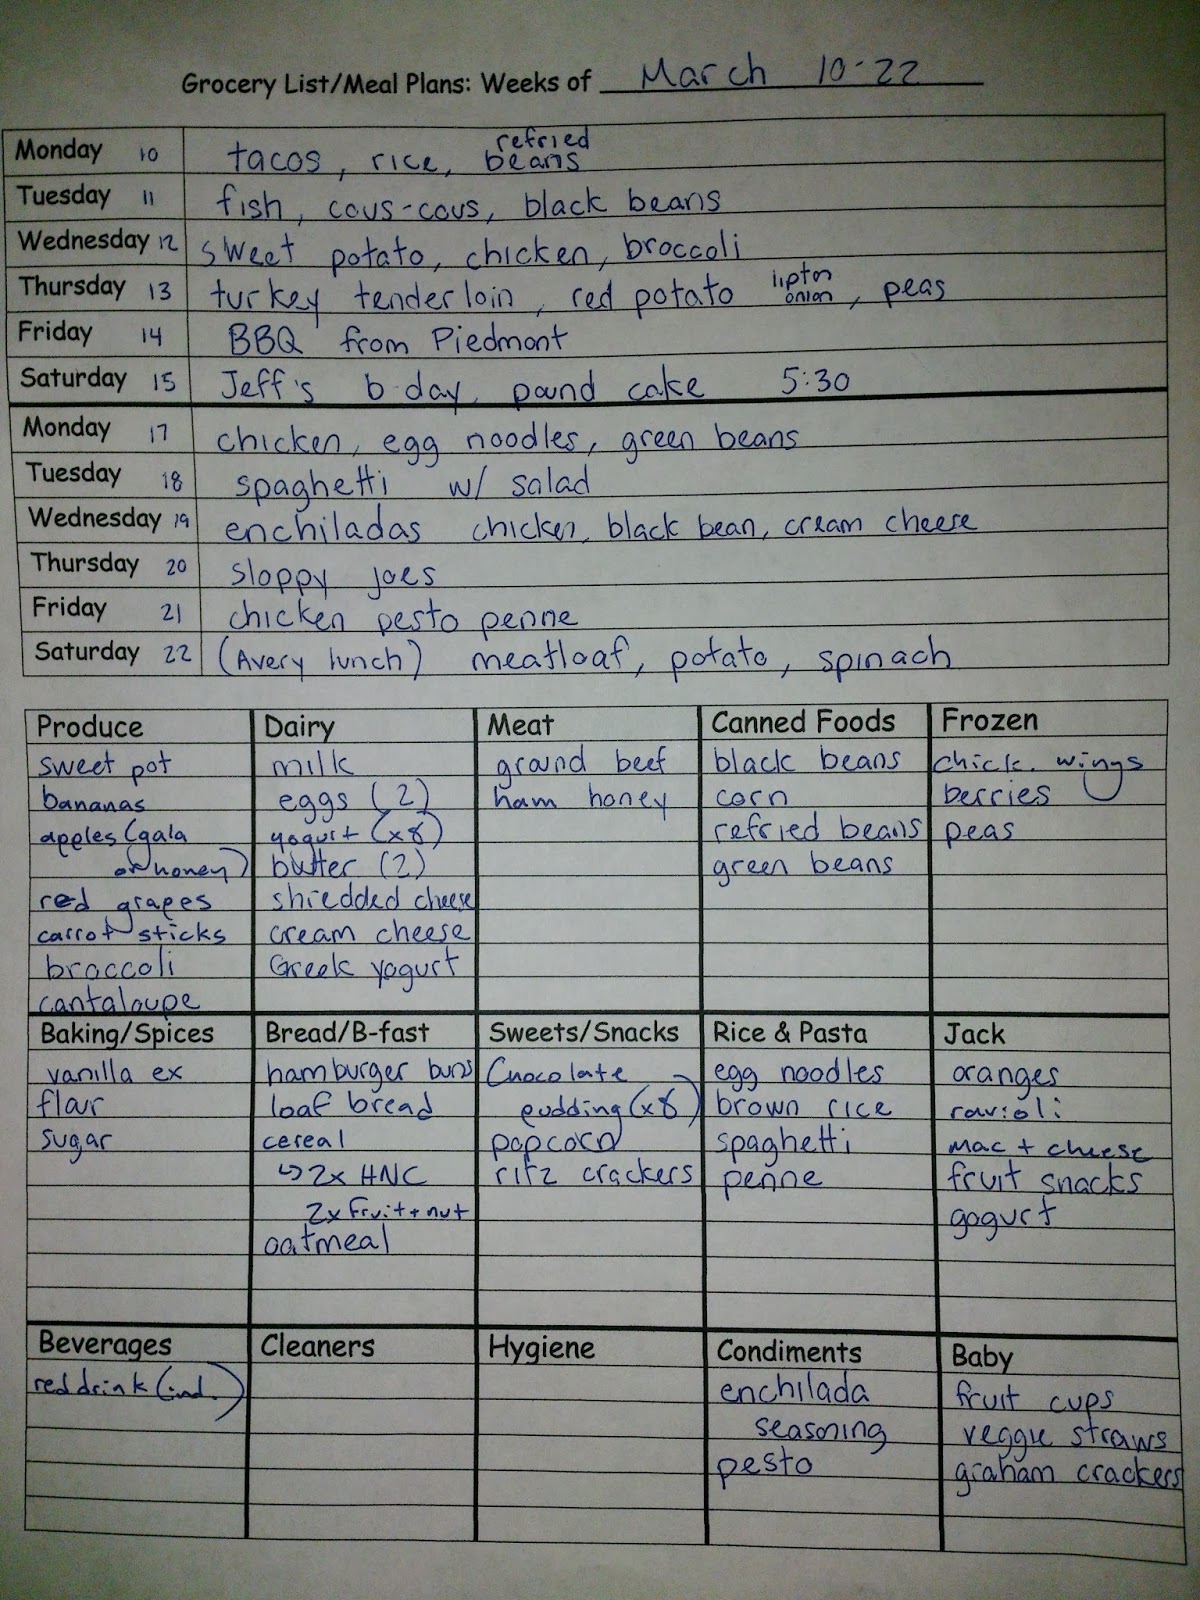 Grocery List/Meal Plans: Weeks of March 10-22
Monday 10 tacos, rice, refried beans
Tuesday 11 fish, cous-cous, black beans
Wednesday 12 sweet potato, chicken, broccoli
Thursday 13 turkey tenderloin, red potato lipton onion, peas
Friday 14 BBQ from Piedmont
Saturday 15 Jeff's b-day, pound cake 5:30
Monday 17 chicken, egg noodles, green beans
Tuesday 18 spaghetti w/ salad
Wednesday 19 enchiladas chicken, black bean, cream cheese
Thursday 20 sloppy joes
Friday 21 chicken pesto penne
Saturday 22 (Avery lunch) meatloaf, potato, spinach
Produce
sweet pot
bananas
apples (gala
or honey)
red grapes
carrot sticks
broccoli
cantaloupe
Dairy
milk
eggs (2)
yogurt (x8)
butter (2)
shredded cheese
cream cheese
Greek yogurt
Meat
ground beef
ham honey
Canned Foods
black beans
corn
refried beans
green beans
Frozen
chick. wings
berries
peas
Baking/Spices
vanilla ex
flour
sugar
Bread/B-fast
hamburger buns
loaf bread
cereal
↳ 2x HNC
2x Fruit + nut
oatmeal
Sweets/Snacks
Chocolate
pudding (x8)
popcorn
ritz crackers
Rice & Pasta
egg noodles
brown rice
spaghetti
penne
Jack
oranges
ravioli
mac + cheese
fruit snacks
yogurt
Beverages
red drink (ind.)
Cleaners
Hygiene
Condiments
enchilada
seasoning
pesto
Baby
fruit cups
veggie straws
graham crackers